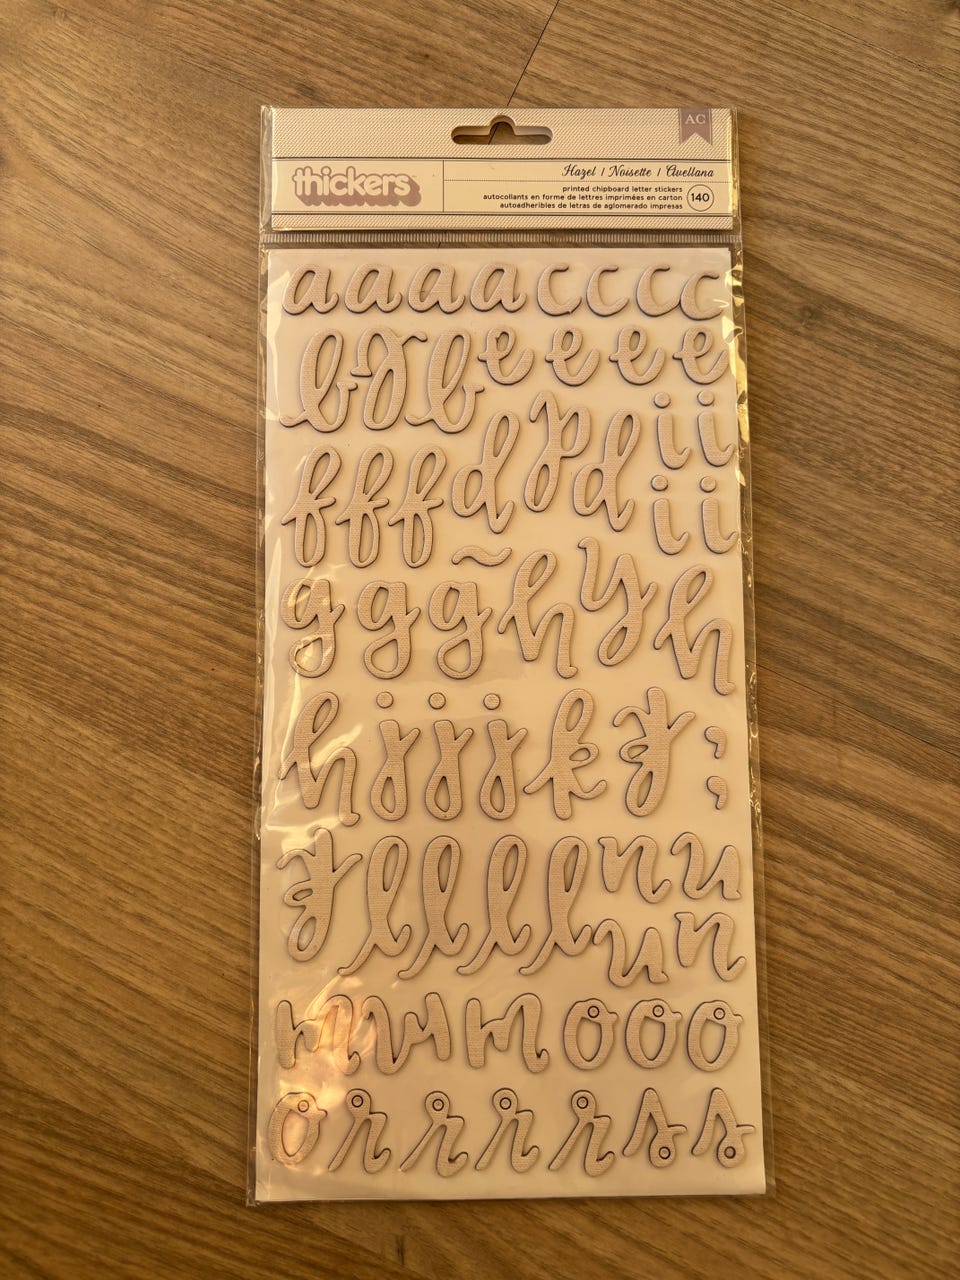 AC
thickers™
Hazel / Noisette / Avellana
printed chipboard letter stickers
autocollants en forme de lettres imprimées en carton
autoadheribles de letras de aglomerado impresas
140
a a a a c c c c
b z b e e e e
f f f d p d i i
i i
g g g ~ h y h
h j j j k z ;
z l l l l n u
u n
m m m o o o
o r r r r s s